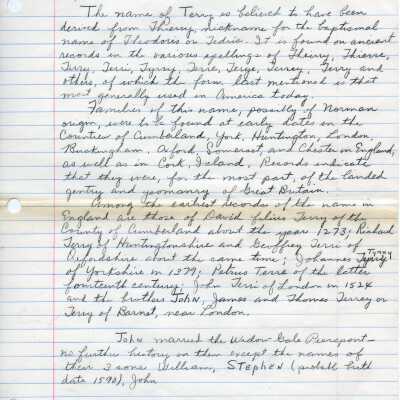 The name of Terry is believed to have been
derived from Thierry, nickname for the baptismal
name of Theodores or Tedric. It is found on ancient
records in the various spellings of Therry, Thierre,
Terry, Terri, Terrie,
others, of which the form last mentioned is that
most generally used in America today.
Families of this name, possibly of Norman
origin, were to be found at early dates in the
Counties of Cumberland, York, Huntington, London,
Buckingham, Oxford, Somerset, and Chester in England,
as well as in Cork, Ireland. Records indicate
that they were, for the most part, of the landed
gentry and yeomanry of Great Britain.
Among the earliest records of the name in
England are those of David filius Terry of the
County of Cumberland about the year 1273; Richard
Terry of Huntingtonshire and Geoffrey Terri of
Oxfordshire about the same time; Johannes Terry
of Yorkshire in 1379; Petrus Terre of the latter
fourteenth century; John Terri of London in 1524
and the brothers John, James and Thomas Terrey or
Terry of Barnet, near London.
John married the Widow Gale Pierepont-
no further history on them except the names of
their 3 sons William, STEPHEN (probable birth
date 1590), John